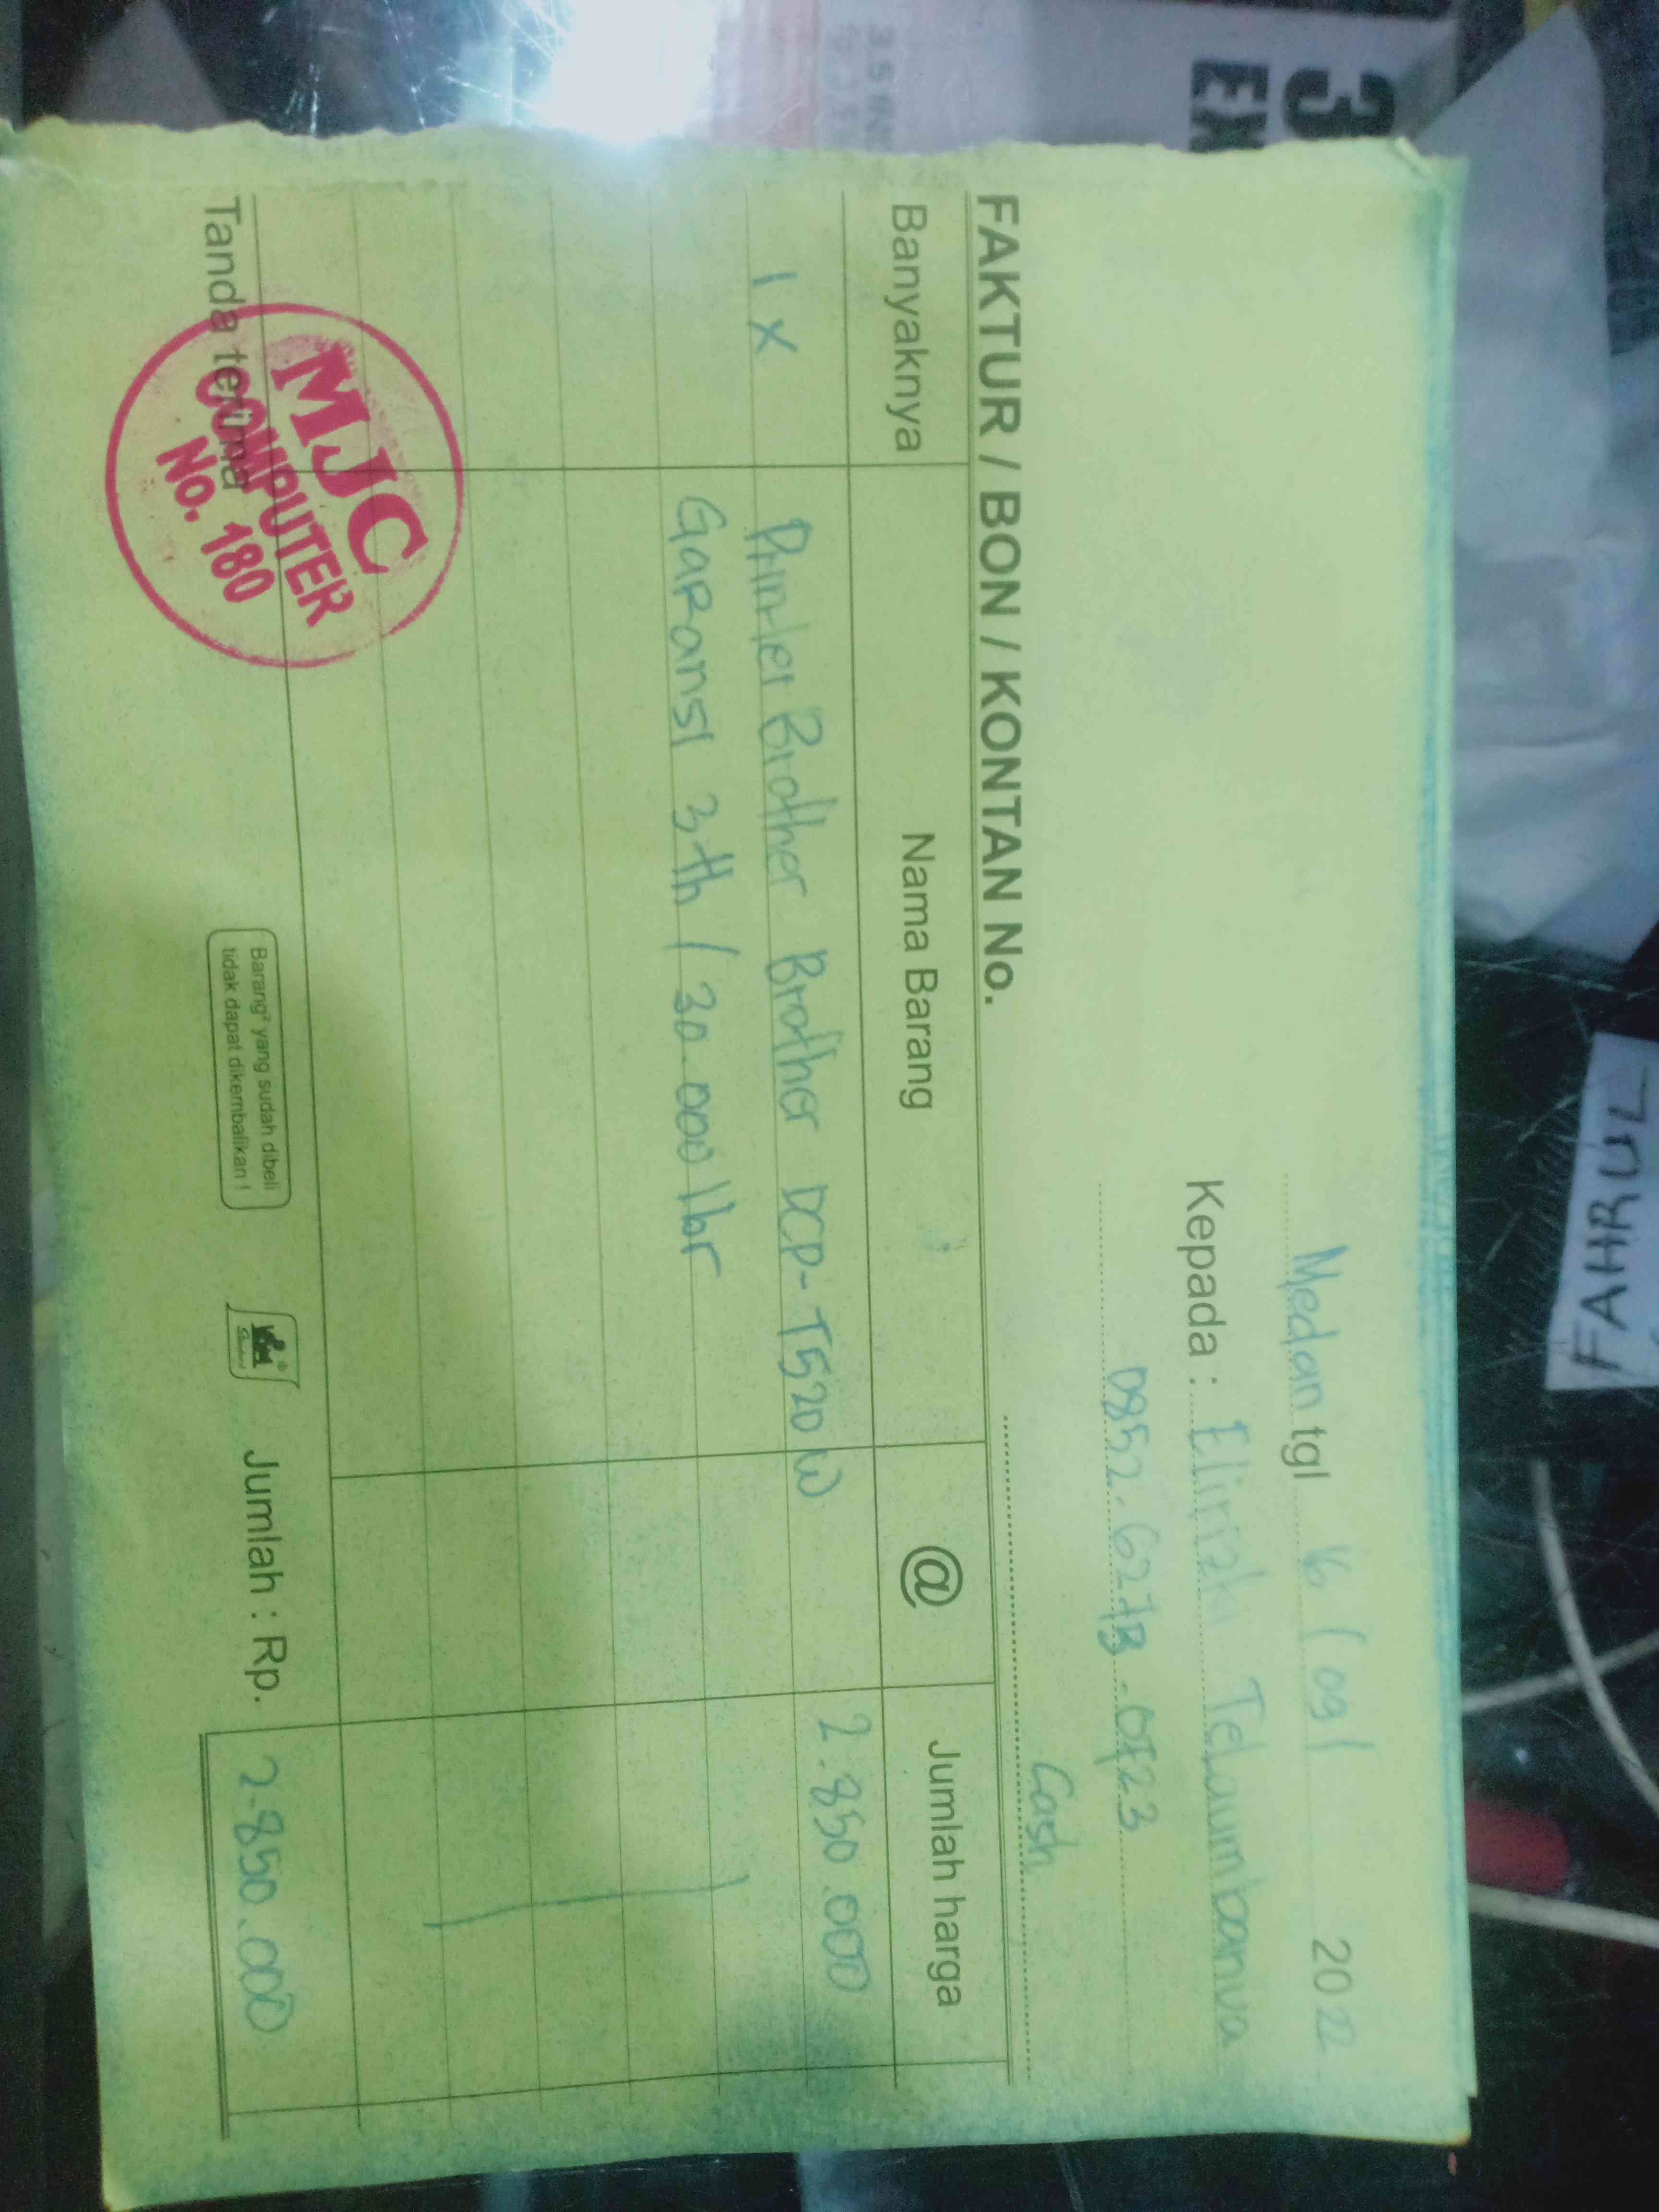 Medan tgl 16 / 09 / 2022
Kepada : Telaumbanua
Cash
FAKTUR / BON / KONTAN No.
Banyaknya Nama Barang @ Jumlah harga
1 x Printer Brother Brother DCP-T520W 2.850.000
Garansi 3th / 30.000 lbr
Tanda terima
MJC
COMPUTER
No. 180
Barang² yang sudah dibeli
tidak dapat dikembalikan !
Jumlah : Rp. 2.850.000
FAHRUL
3
EX